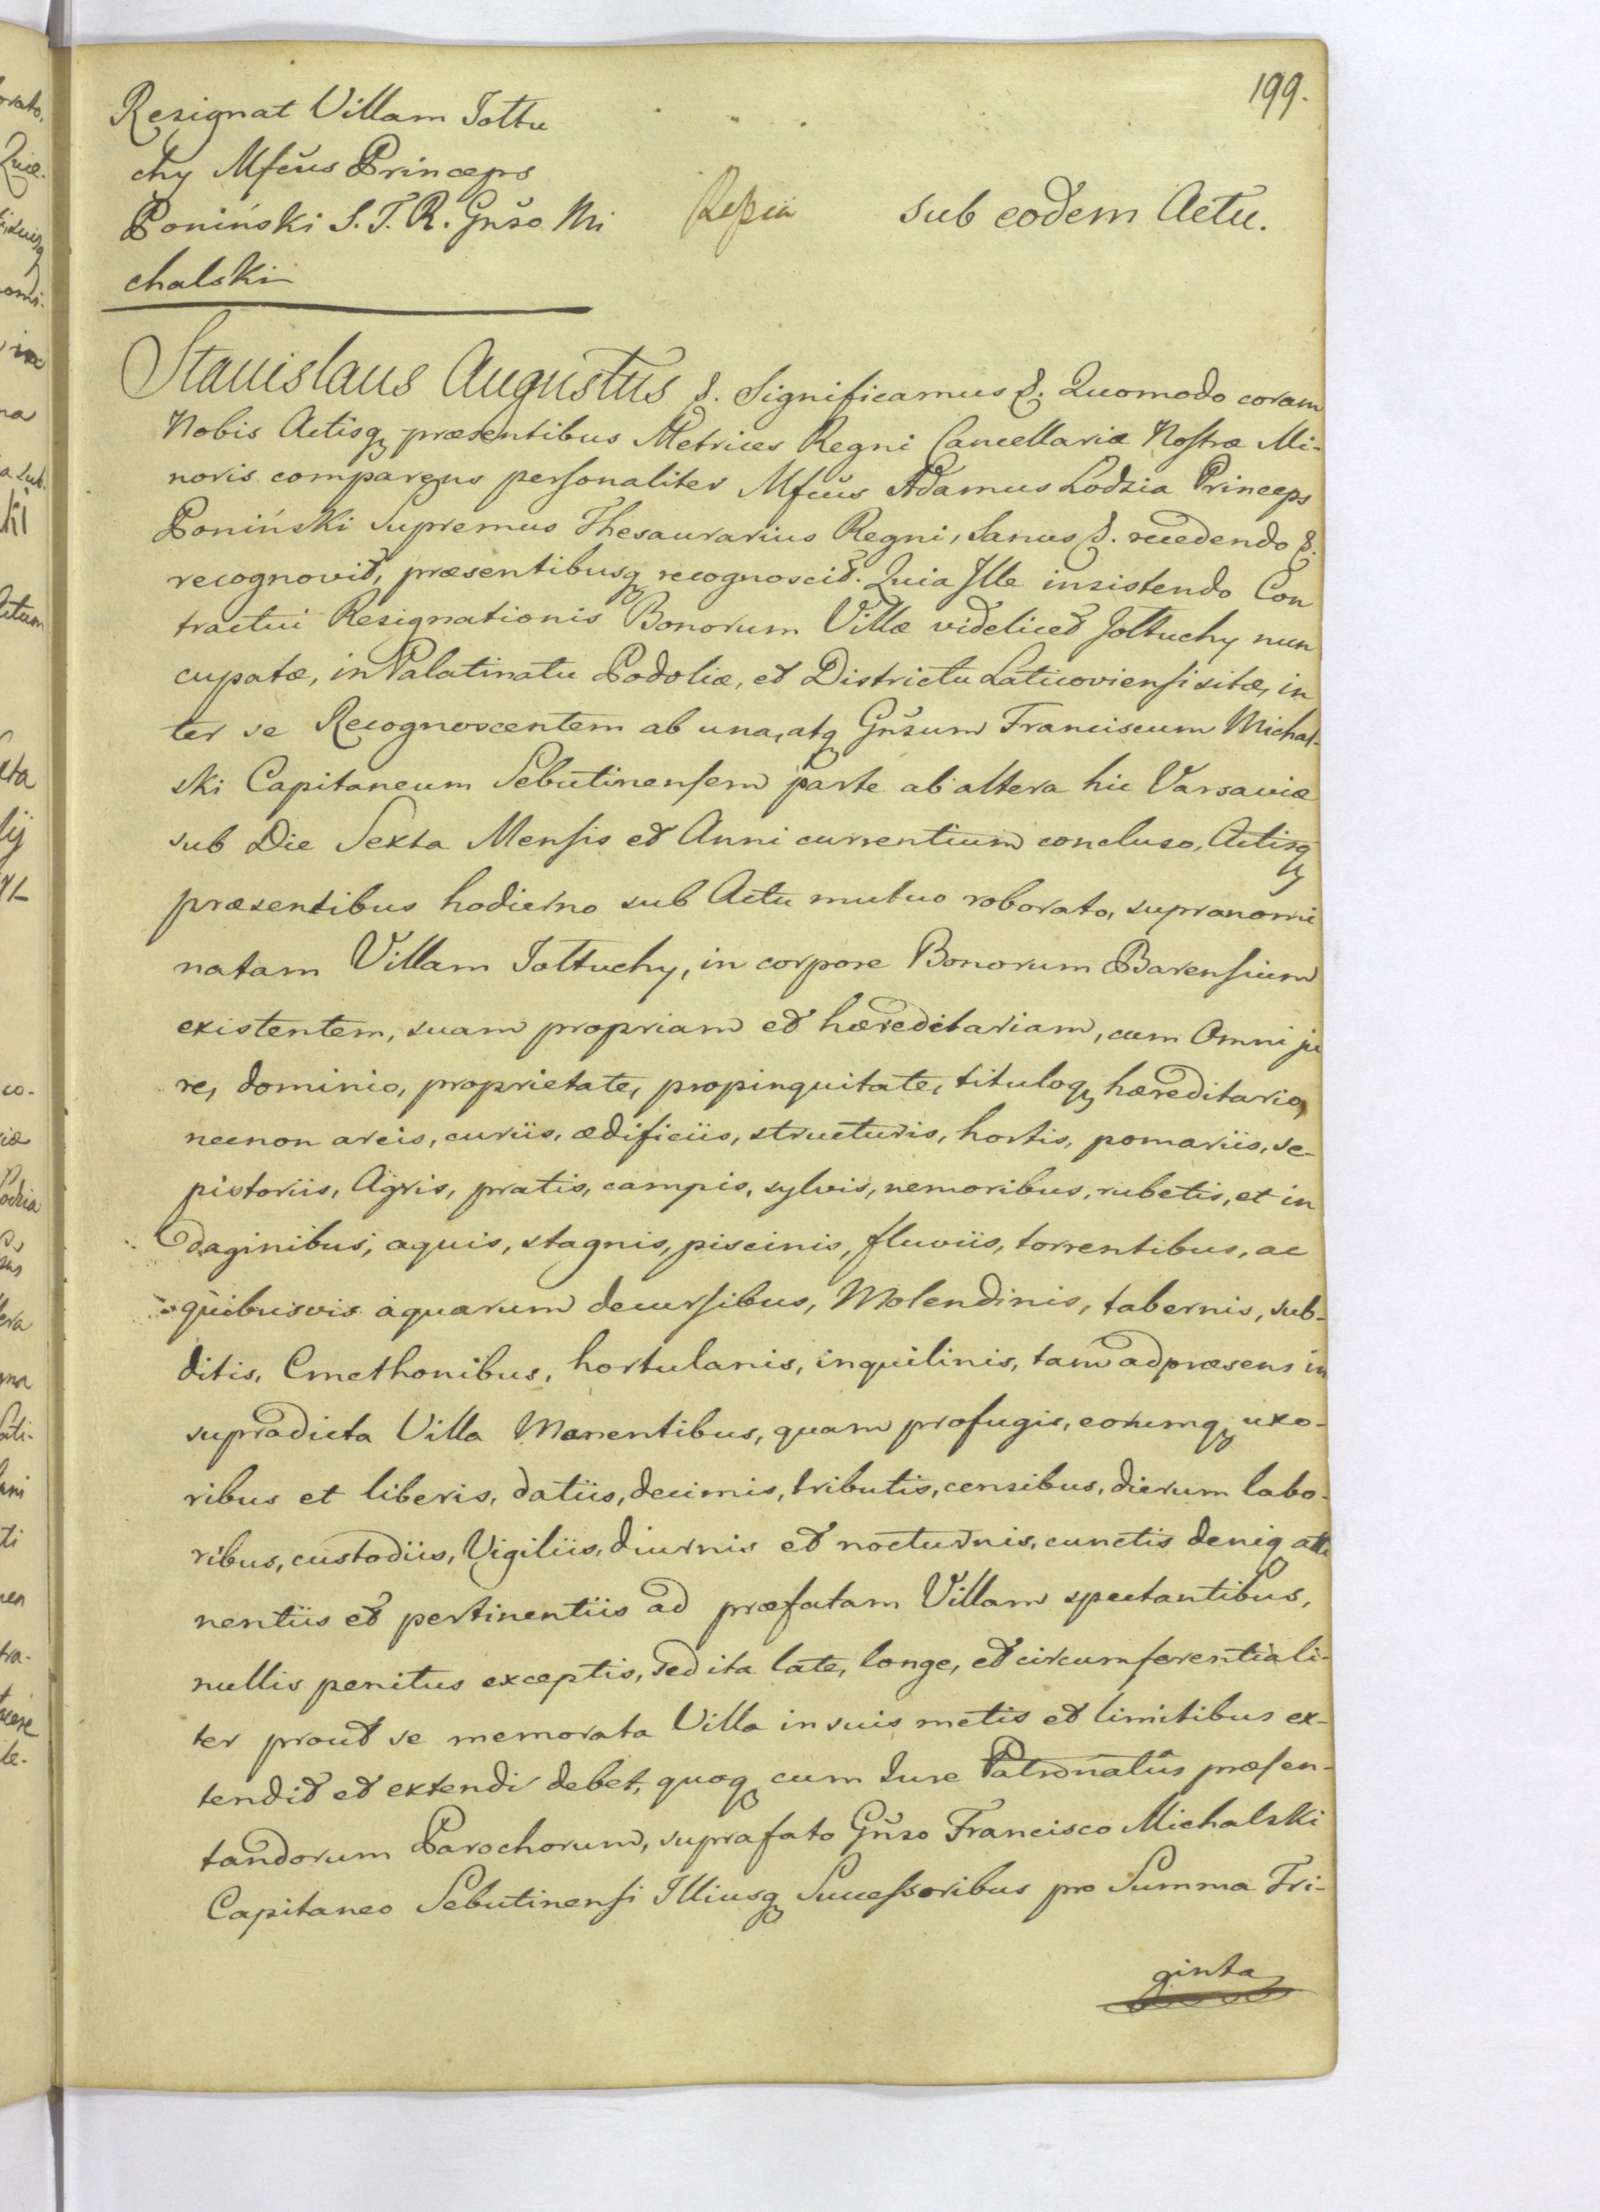 199.
Resignat Villam Joltu
chy Mfcus Princeps
Poniński S. T. R. Gñso Mi
chalski
sub eodem Actu.
Stanislaus Augustus &. Significamus &. Quomodo coram
Nobis Actisq præsentibus Metrices Regni Cancellariæ Nostræ Mi-
noris comparens personaliter Mfcus Adamus Lodzia Princeps
Poniński Supremus Thesaurarius Regni, Sanus &. recedendo &.
recognovit, præsentibusq recognoscit. Quia Ille insistendo Con
tractui Resignationis Bonorum Villæ videlicet Joltuchy nun
cupatæ, in Palatinatu Podoliæ, et Districtu Laticoviensi sitæ, in
ter se Recognoscentem ab una, atq Gñsum Franciscum Michal-
ski Capitaneum Sebutinensem parte ab altera hic Varsaviæ
sub Die Sexta Mensis et Anni currentium concluso, Actisq
præsentibus hodierno sub Actu mutuo roborato, supranomi
natam Villam Joltuchy, in corpore Bonorum Barensium
existentem, suam propriam et hæreditariam, cum Omni ju
re, dominio, proprietate, propinquitate, tituloq hæreditario,
necnon areis, curiis, ædificiis, structuris, hortis, pomariis, se-
pistoriis, Agris, pratis, campis, sylvis, nemoribus, rubetis, et in
daginibus, aquis, stagnis, piscinis, fluviis, torrentibus, ac
quibusvis aquarum decursibus, Molendinis, tabernis, sub-
ditis, Cmethonibus, hortulanis, inquilinis, tam ad præsens in
supradicta Villa Manentibus, quam profugis, eorumq uxo-
ribus et liberis, datiis, decimis, tributis, censibus, dierum labo-
ribus, custodiis, Vigiliis, diurnis et nocturnis, cunctis deniq atti
nentiis et pertinentiis ad præfatam Villam spectantibus,
nullis penitus exceptis, sed ita late, longe, et circumferentiali-
ter prout se memorata Villa in suis metis et limitibus ex-
tendit et extendi debet, quoq cum Jure Patronatûs præsen-
tandorum Parochorum, suprafato Gñso Francisco Michalski
Capitaneo Sebutinensi Illiusq Successoribus pro Summa Tri-
ginta